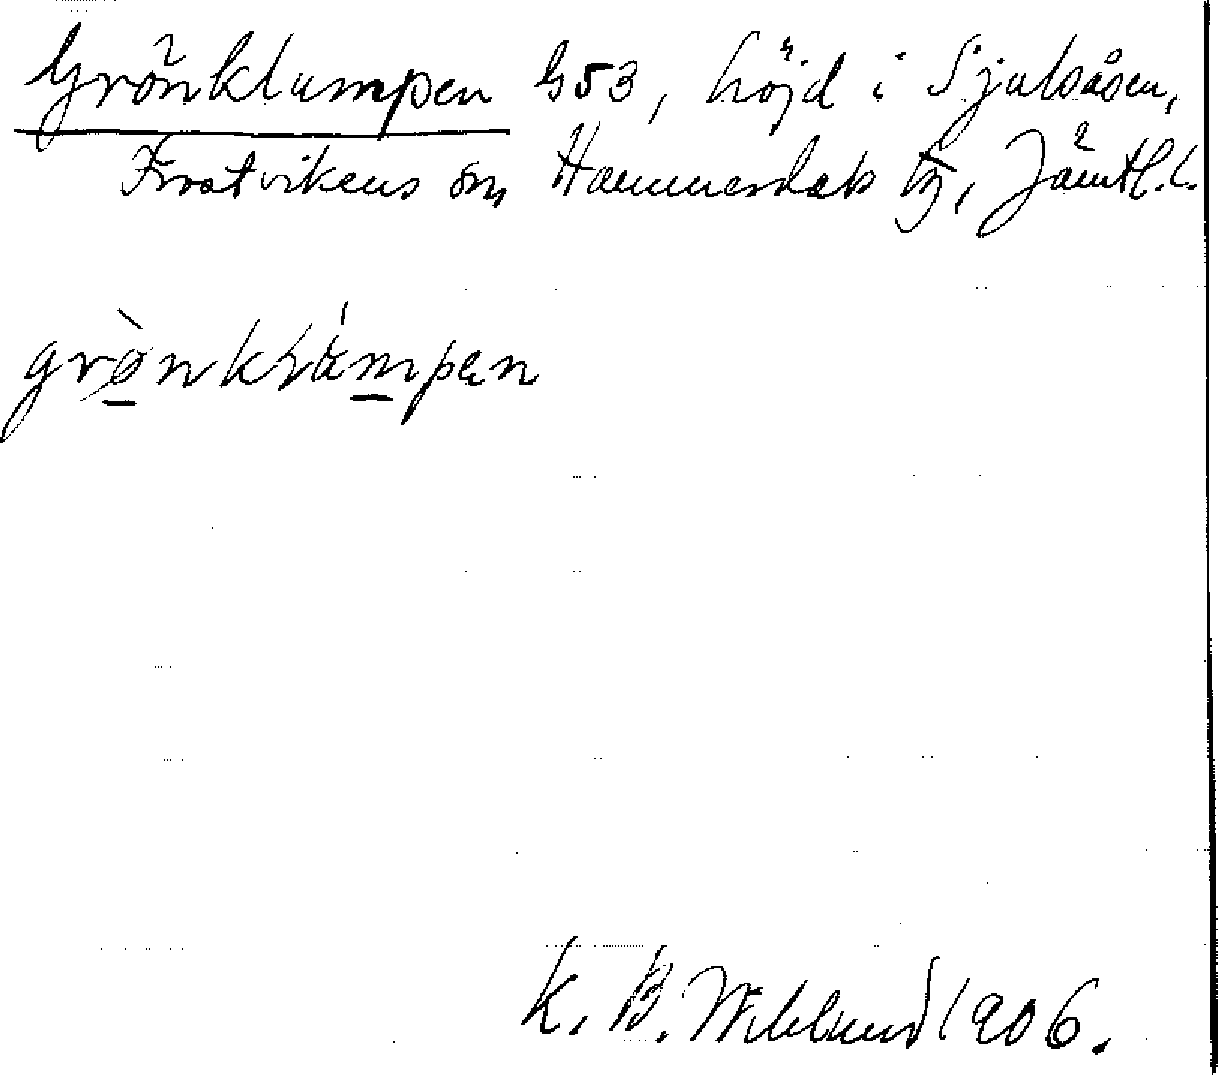 Grönklumpen G53, höjd i Sjulsåsen,
Frostvikens sn, Hammerdals tg, Jämtl. l.
K. B. Wiklund 1906.